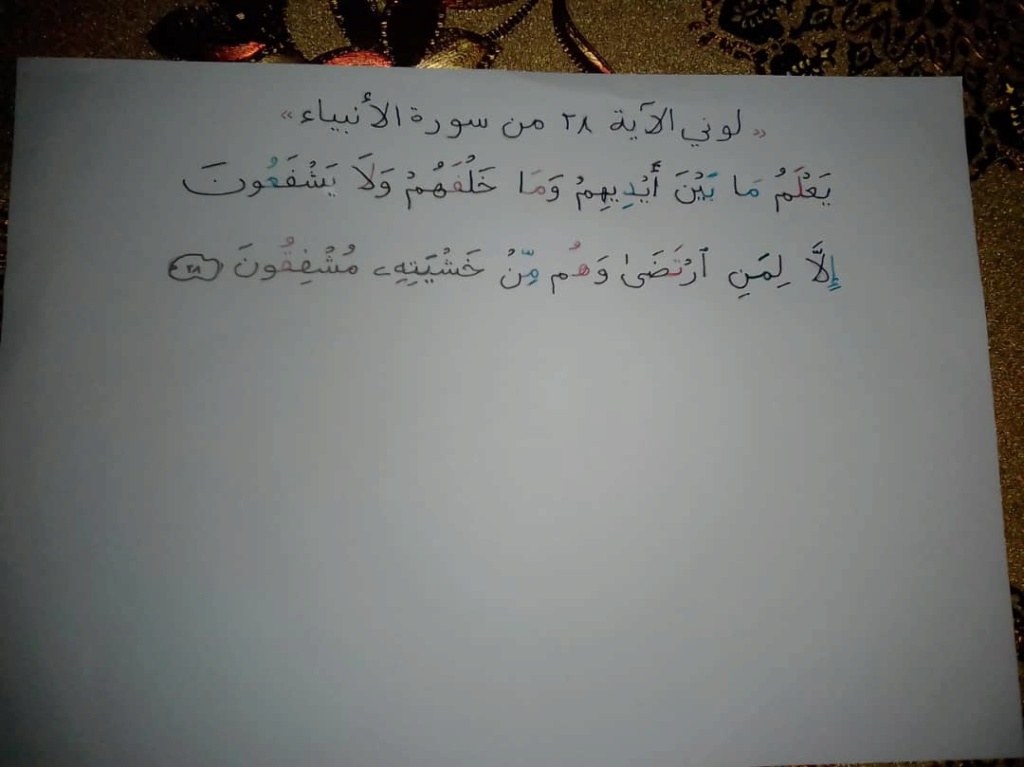 « لوني الآية ٢٨ من سورة الأنبياء »
يَعْلَمُ مَا بَيْنَ أَيْدِيهِمْ وَمَا خَلْفَهُمْ وَلَا يَشْفَعُونَ
إِلَّا لِمَنِ ٱرْتَضَىٰ وَهُم مِّنْ خَشْيَتِهِۦ مُشْفِقُونَ ٢٨